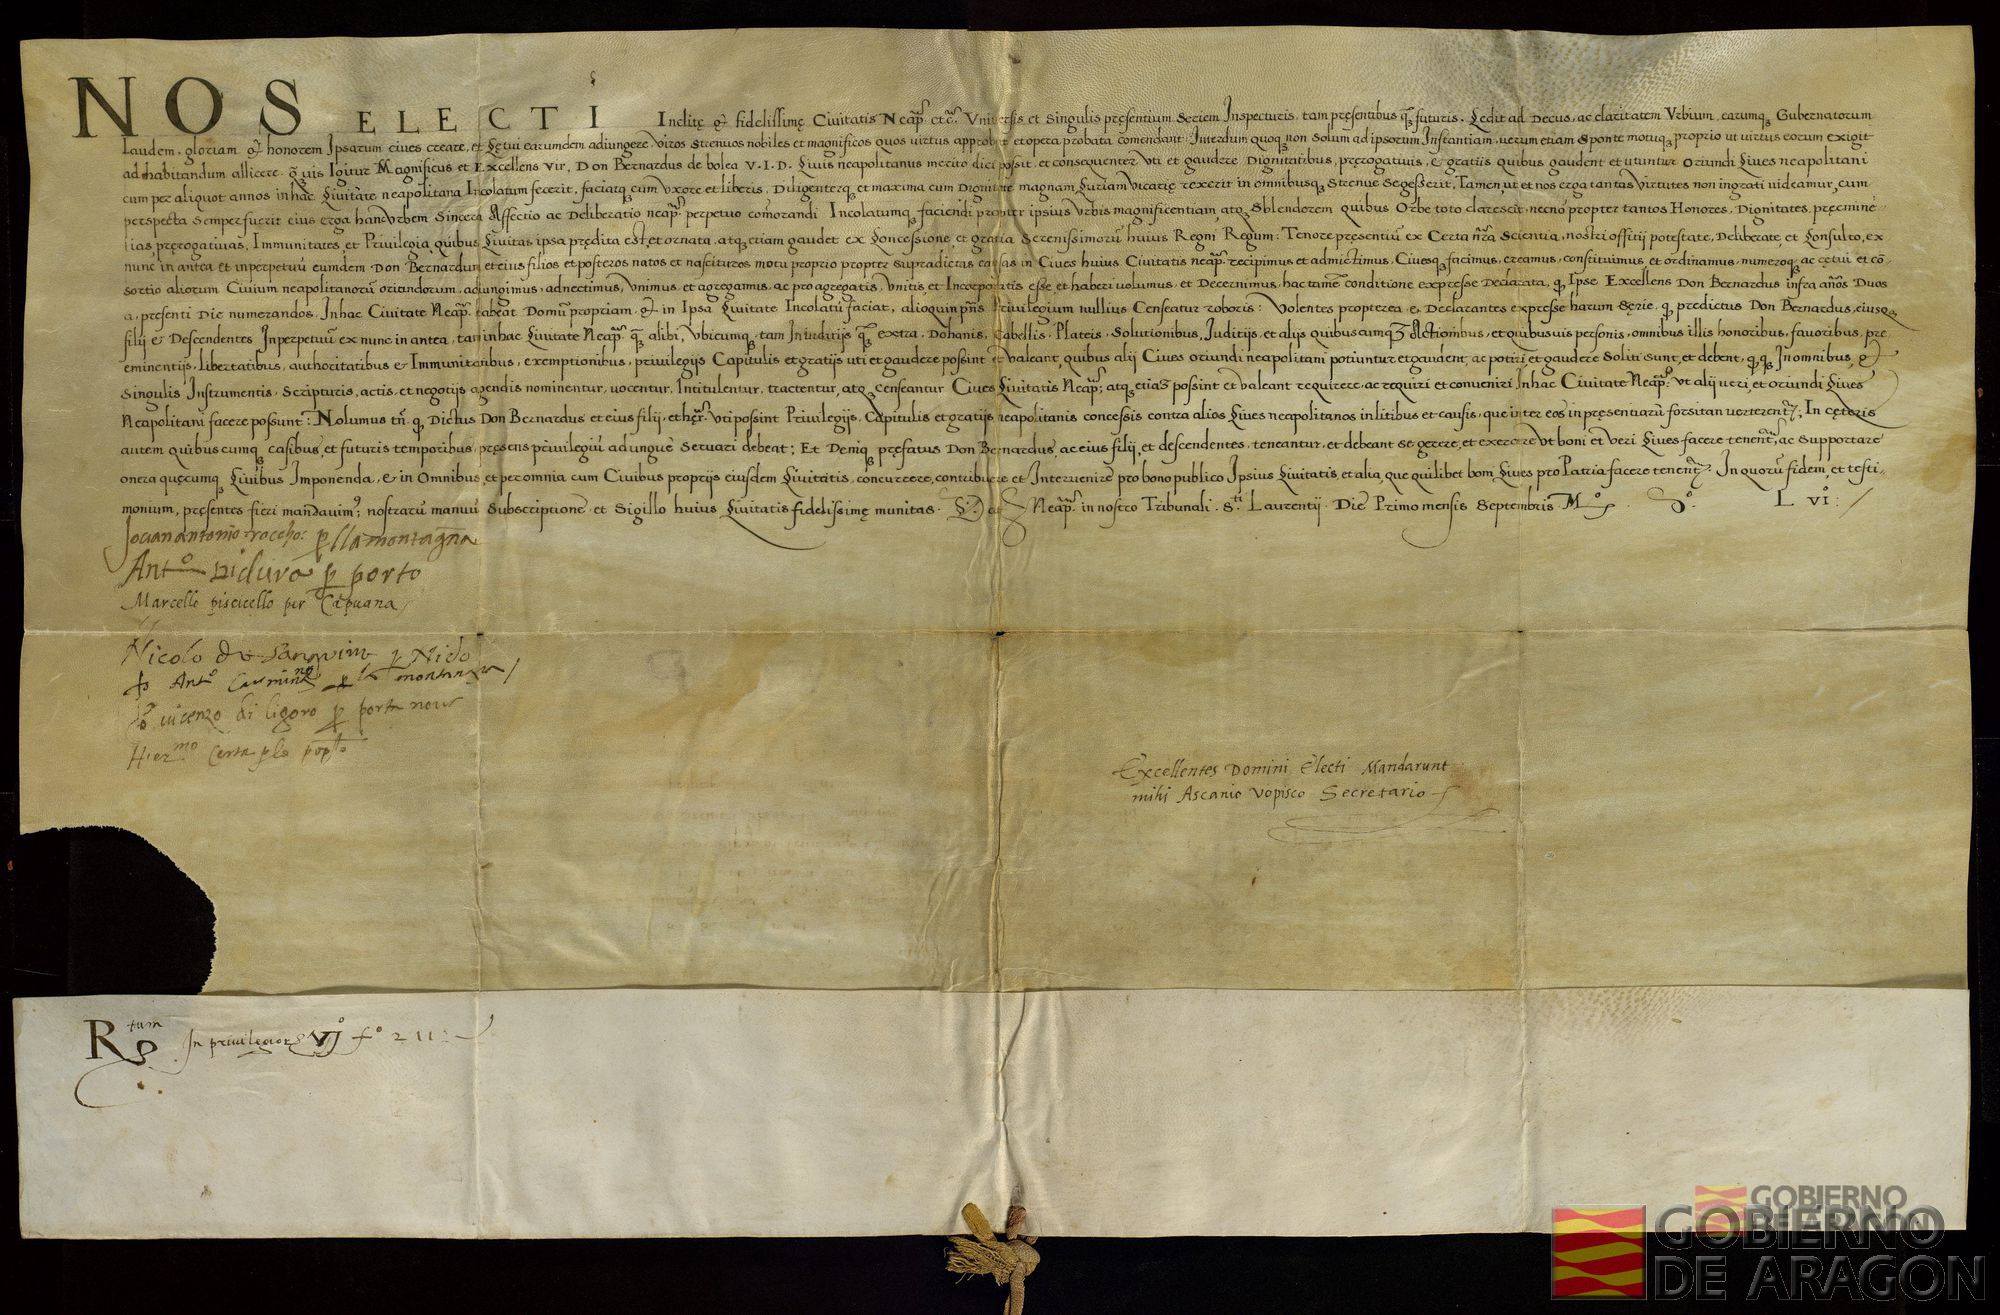 NOS ELECTI Inclitę et fidelissimę Ciuitatis Neap. etc. Vniuersis et Singulis pręsentium Seriem Inspecturis, tam pręsentibus q futuris. Cedit ad Decus, ac claritatem Vrbium, earumq Gubernatorum
Laudem, gloriam et honorem Ipsarum ciues creare, et Cętui earumdem adiungere, viros strenuos nobiles et magnificos quos virtus approbat et opera probata comendant. Interdum quoq non Solum ad ipsorum Instantiam, verum etiam Sponte motuq proprio ut virtus eorum exigit
ad habitandum allicere. q uis Igitur Magnificus et Excellens Vir, Don Bernardus de bolea V.I.D. Ciuis neapolitanus merito dici possit, et consequenter Vti et gaudere Dignitatibus, pręrogatiuis, & gratiis quibus gaudent et utuntur Oriundi Ciues neapolitani
cum per aliquot annos in hac Ciuitate neapolitana Incolatum fecerit, faciatq cum vxore et liberis, Diligenterq et maxima cum Dignitate magnam Curiam Vicarię rexerit in omnibusq Strenue Se gesserit, Tamen, ut et nos erga tantas Virtutes non ingrati videamur, cum
perspecta Semper fuerit eius erga hanc Vrbem Sincera Affectio ac Deliberatio neap. perpetuo comorandi Incolatumq faciendi propter ipsius Vrbis magnificentiam, atq Splendorem quibus Orbe toto clarescit, necnō propter tantos Honores, Dignitates, pręeminē
tias, pręrogatiuas, Immunitates, et Priuilegia, quibus Ciuitas ipsa prędita est, et ornata, atq etiam gaudet ex Concessione, et gratia Serenissimorū huius Regni Regum: Tenore pręsentiū ex Certa nr̄a Scientia, nostri offitij potestate, Deliberate, et Consulto, ex
nunc in antea et in perpetuū eumdem Don Bernardum et eius filios et posteros natos et nascituros motu proprio propter supradictas causas in Ciues huius Ciuitatis neap. recipimus et admictimus, Ciuesq facimus, creamus, constituimus et ordinamus, numeroq ac cętui et cō
sortio aliorum Ciuium neapolitanorū oriundorum, adiungimus, adnectimus, Vnimus, et agregamus, ac pro agregatis, Vnitis et Incorporatis esse, et haberi uolumus, et Decernimus, hac tamē conditione expresse Declarata, q Ipse Excellens Don Bernardus infra años Duos
a, presenti Die numerandos, In hac Ciuitate Neap. habeat Domū propriam, et in Ipsa Ciuitate Incolatū faciat, alioquin pn̄s Priuilegium nullius Censeatur roboris: Volentes propterea & Declarantes expresse harum Serie, q predictus Don Bernardus, eiusq
filij & Descendentes In perpetuū ex nunc in antea, tam in hac Ciuitate Neap. q alibi, Vbicumq, tam In inditijs q extra, Dohanis, Cabellis, Plateis, Solutionibus, Juditijs, et alijs quibuscumq Actionibus, et quibusuis personis, omnibus illis honoribus, fauoribus, pre
eminentijs, libertatibus, authoritatibus & Immunitatibus, exemptionibus, priuilegijs Capitulis et gratijs uti et gaudere possint et valeant, quibus alij Ciues oriundi neapolitani potiuntur et gaudent, ac potiri et gaudere Soliti sunt, et debent, q q In omnibus, et
Singulis Instrumentis, Scripturis, actis, et negotijs agendis nominentur, uocentur, Intitulentur, tractentur, atq censeantur Ciues Ciuitatis Neap; atq etiā possint et valeant requirere, ac requiri et conueniri In hac Ciuitate Neap. Vt alij ueri, et oriundi Ciues
Neapolitani facere possunt: Nolumus tn̄ q Dictus Don Bernardus et eius filij, et hęr. Vti possint Priuilegijs, Capitulis et gratijs neapolitanis concessis contra alios Ciues neapolitanos in litibus et causis, que inter eos in pręsentiarū forsitan verterent; In cęteris
autem quibuscumq casibus, et futuris temporibus, pręsens priuilegiū ad unguē Seruari debeat; Et Deniq pręfatus Don Bernardus, ac eius filij, et descendentes, teneantur, et debeant se gerere, et exercere Vt boni et Veri Ciues facere tenent, ac Supportare
onera quęcumq Ciuibus Imponenda, & in Omnibus, et per omnia cum Ciuibus proprijs eiusdem Ciuitatis, concurrere, contribuere et Interuenire pro bono publico Ipsius Ciuitatis, et alia, que quilibet bom Ciues pro Patria facere tenent. In quorū fidem, et testi-
monium, pręsentes fieri mandauim; nostrarū manuū Subscriptione, et Sigillo huius Ciuitatis fidelissimę munitas. Neap. in nostro Tribunali. S.ti Laurentij. Die Primo mensis Septembris M.o D.o L VI.o
Jo uan antonio p lla montagna
Ant.o p porto
Marcello piscicello per Capuana
Nicolo de Sanguine p Nido
Ant.o p la montanea
vicenzo di ligoro p porta noua
Hier.mo p lo pop.lo
Excellentes Domini Electi Mandarunt
mihi Ascanio Vopisco Secretario
R.tum In priuilegior VI.o f.o 211
GOBIERNO
DE ARAGON
GOBIERNO
DE ARAGON